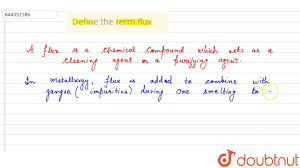 644351186
Define the term flux
A flux is a chemical compound which acts as a
cleaning agent or a purifying agent.
In metallurgy, flux is added to combine with
gangue (impurities) during ore smelting to
doubtnut